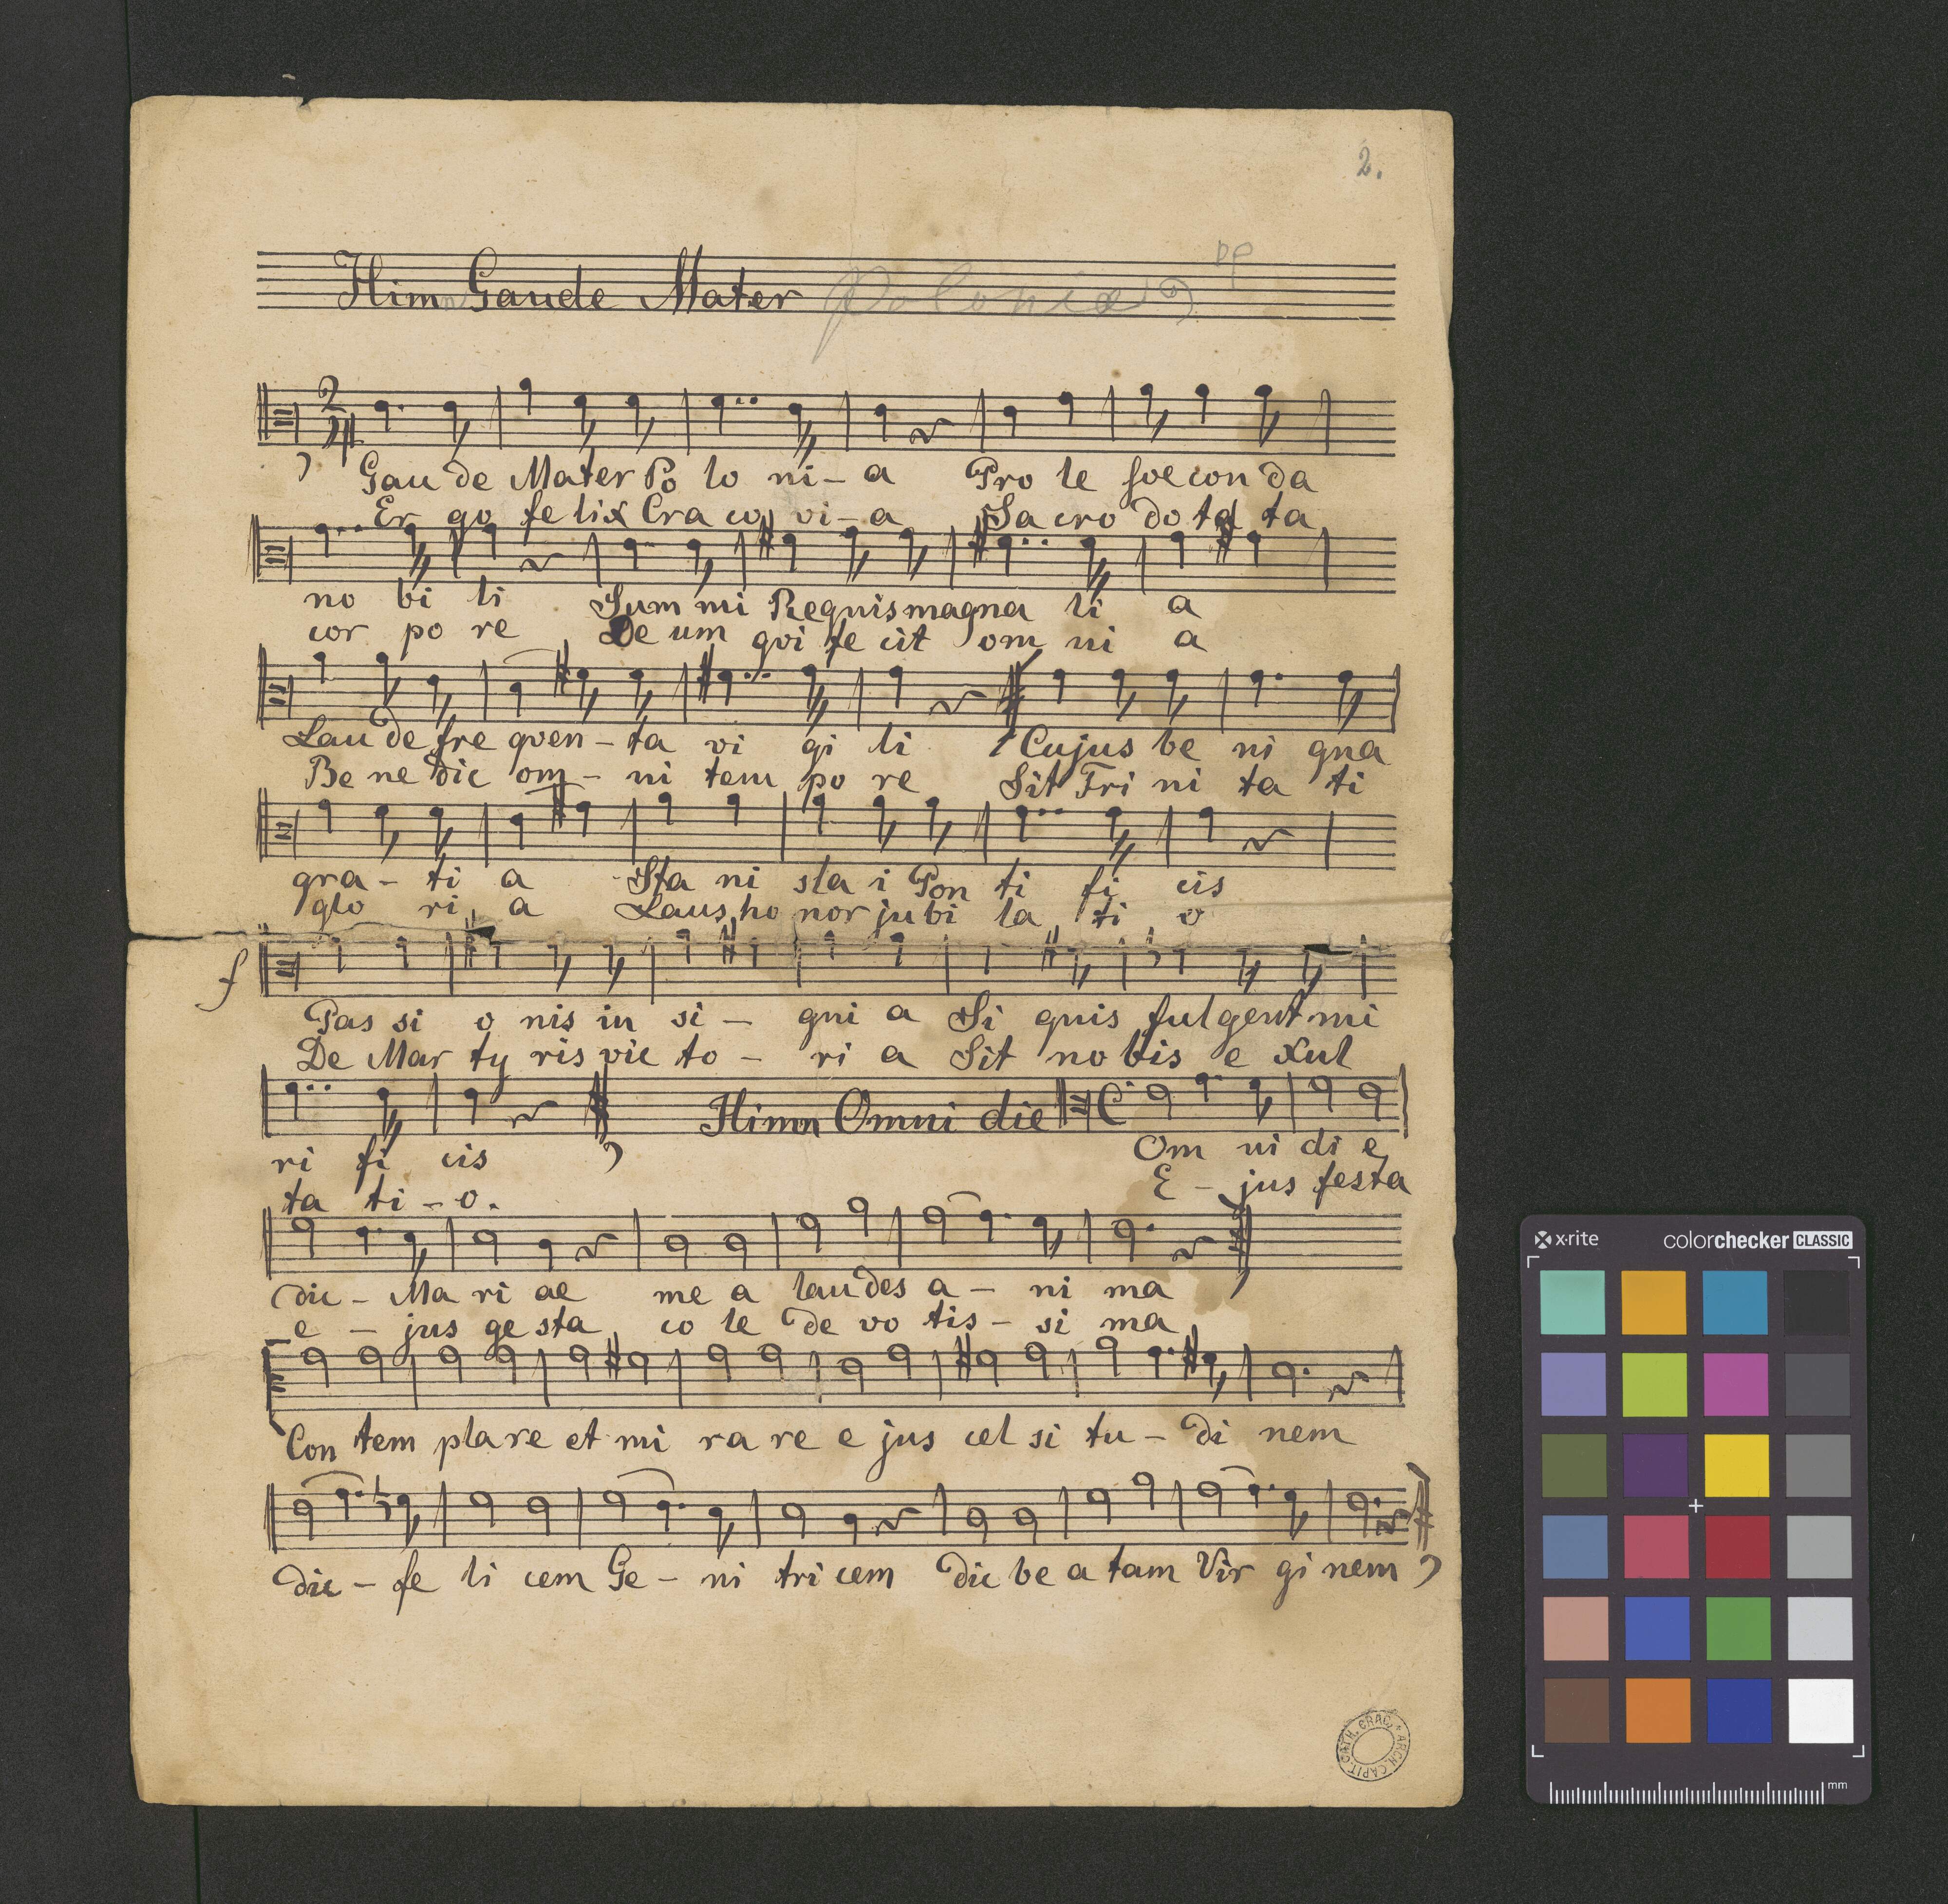 2.
Himn Gaude Mater Poloniæ pp
2
4
Gau de Mater Po lo ni - a Pro le foe con da
Er go fe lix Cra co vi - a Sa cro do ta ta
no bi li Sum mi Regnis magna li a
cor po re De um qvi fe cit om ni a
Lau de fre qven - ta vi gi li Cujus be ni gna
Be ne dic om - ni tem po re Sit Tri ni ta ti
gra - ti a Sta ni sla i Pon ti fi cis
glo ri a Laus ho nor ju bi la ti o
f
Pas si o nis in si - gni a Si gnis fulgent mi
De Mar ty ris vic to - ri a Sit no bis e xul
Himn Omni die C
ri fi cis Om ni di e
ta ti - o. E - jus festa
dic - Ma ri ae me a laudes a - ni ma
e - jus ge sta co le de vo tis - si ma
Con tem pla re et mi ra re e jus cel si tu - di nem
dic - fe li cem Ge - ni tri cem dic be a tam Vir gi nem
ARCH. CAPIT. CATH. CRAC.
x·rite colorchecker CLASSIC
mm